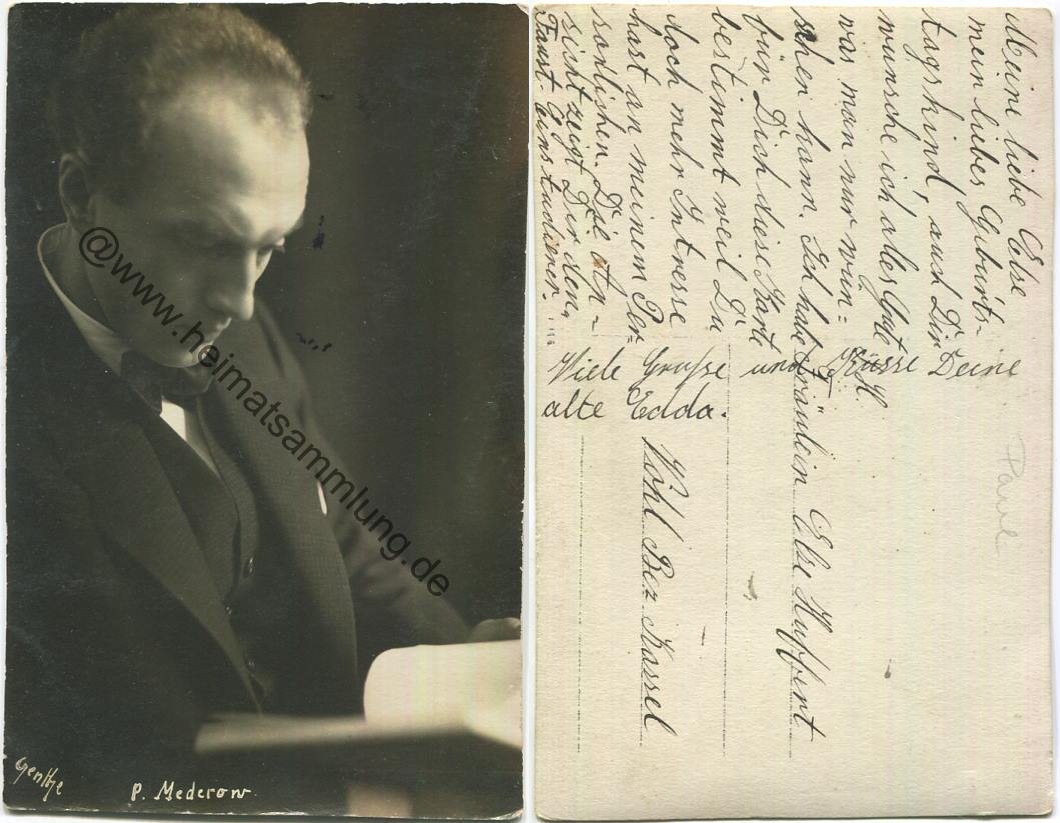 @www.heimatsammlung.de
Genthe
P. Mederow.
Meine liebe Else
mein liebes Geburts-
tagskind, auch Dir
wünsche ich alles Gute
was man nur wün=
schen kann. Ich habe
für Dich diese Karte
bestimmt weil Du
doch mehr Intresse
hast an meinem Per=
sönlichen. Die An-
sicht zeigt Dir den,
Faust-Einstudierer.
Viele Grüße und Küsse Deine
alte Edda.
H.
Fräulein Else Huppert
Wohl Bez Kassel
Paul